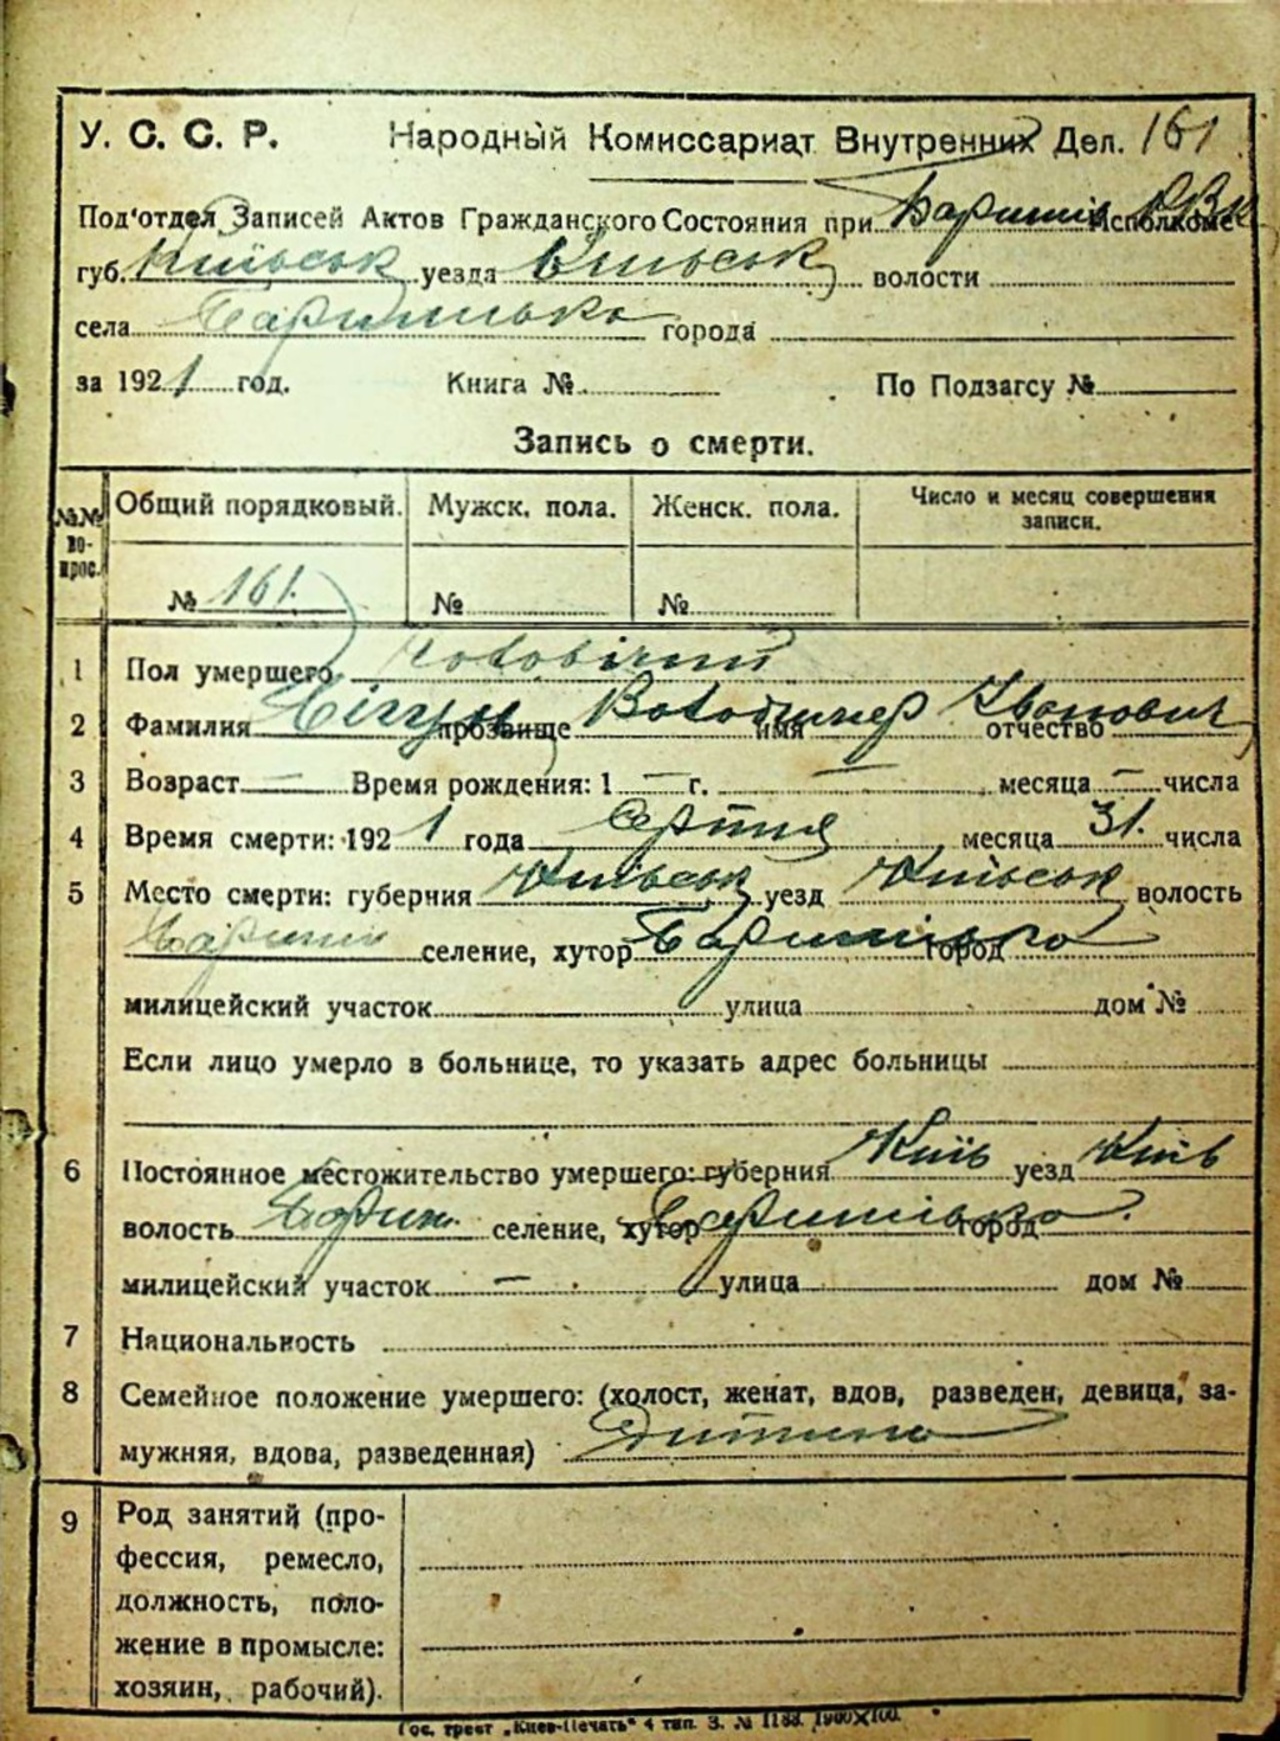 У. С. С. Р. Народный Комиссариат Внутренних Дел. 161
Под'отдел Записей Актов Гражданского Состояния при Исполкоме
губ. Київськ уезда волости
села города
за 1921 год. Книга № По Подзагсу №
Запись о смерти.
№№ во-прос. Общий порядковый. Мужск. пола. Женск. пола. Число и месяц совершения записи.
№ 161. № №
1 Пол умершего чоловічий
2 Фамилия прозвище Володимер имя Іванович отчество
3 Возраст — Время рождения: 1 — г. — месяца — числа
4 Время смерти: 1921 года Серпня месяца 31. числа
5 Место смерти: губерния Київськ уезд Київськ волость
селение, хутор город
милицейский участок улица дом №
Если лицо умерло в больнице, то указать адрес больницы
6 Постоянное местожительство умершего: губерния Київ уезд Київ
волость селение, хутор город
милицейский участок — улица дом №
7 Национальность
8 Семейное положение умершего: (холост, женат, вдов, разведен, девица, за-
мужняя, вдова, разведенная) Дитина
9 Род занятий (про-
фессия, ремесло,
должность, поло-
жение в промысле:
хозяин, рабочий).
Гос. трест „Киев-Печать“ 4 тип. З. № 1188.